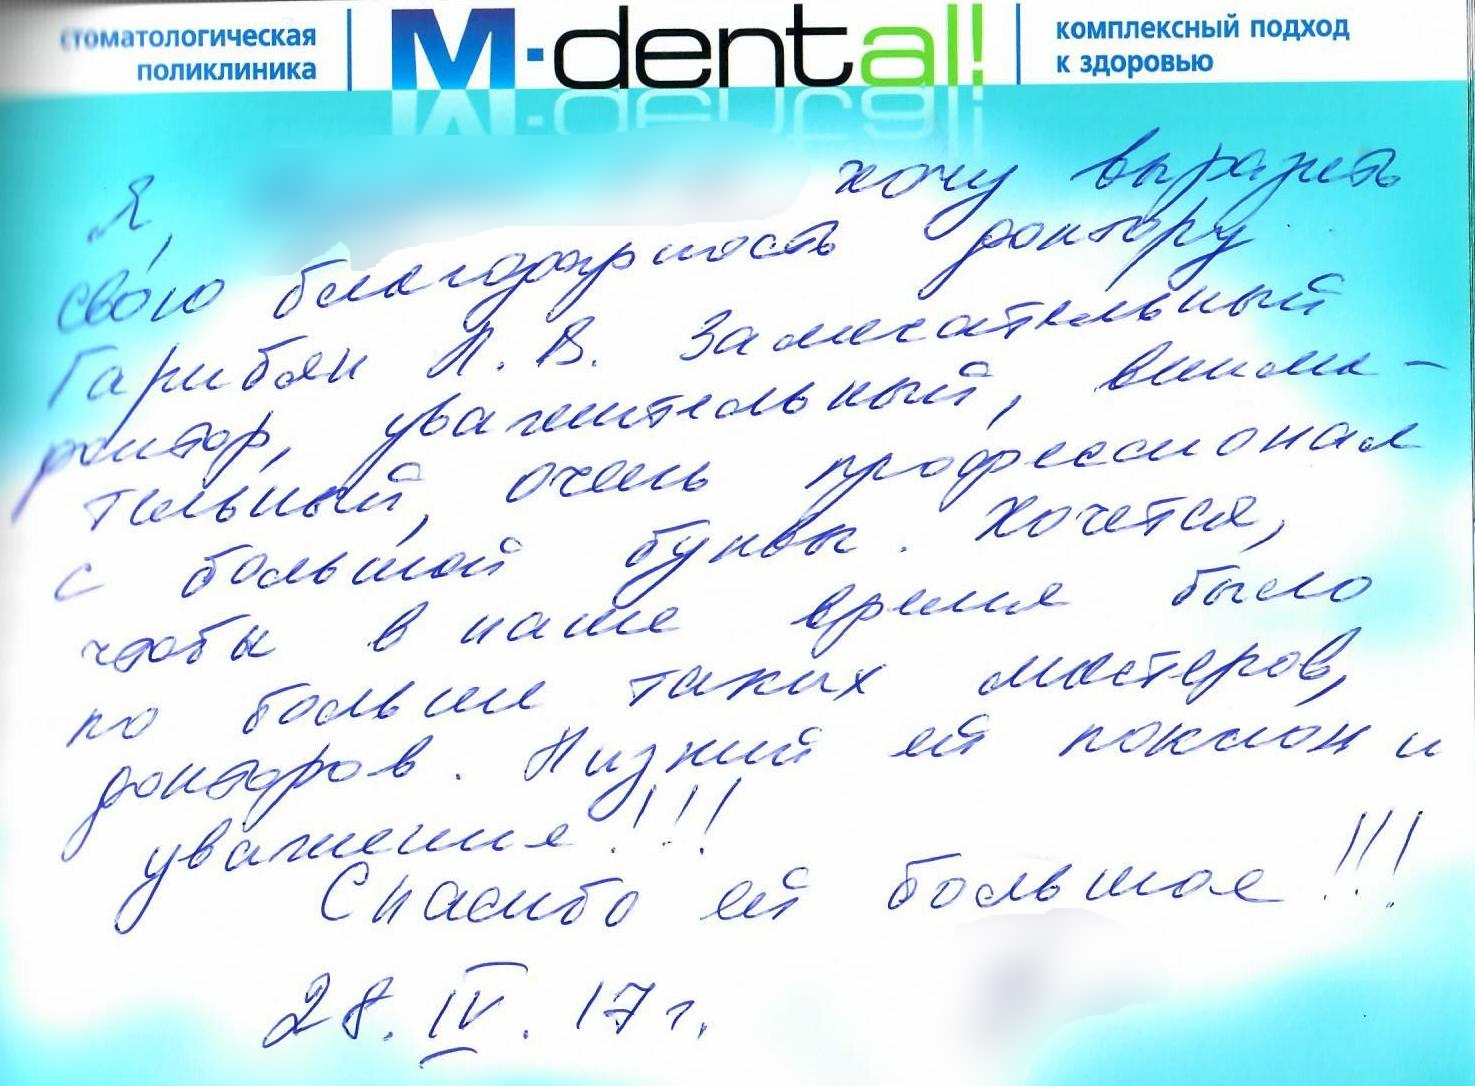 стоматологическая
поликлиника
M·dental!
комплексный подход
к здоровью
Я, хочу выразить
свою благодарность доктору
Гарибян Л. В. Замечательный
доктор, уважительный, внима-
тельный, очень профессионал
с большой буквы. Хочется,
чтобы в наше время было
по больше таких мастеров,
докторов. Низкий ей поклон и
уважения!!!
Спасибо ей большое!!!
28. IV. 17 г.